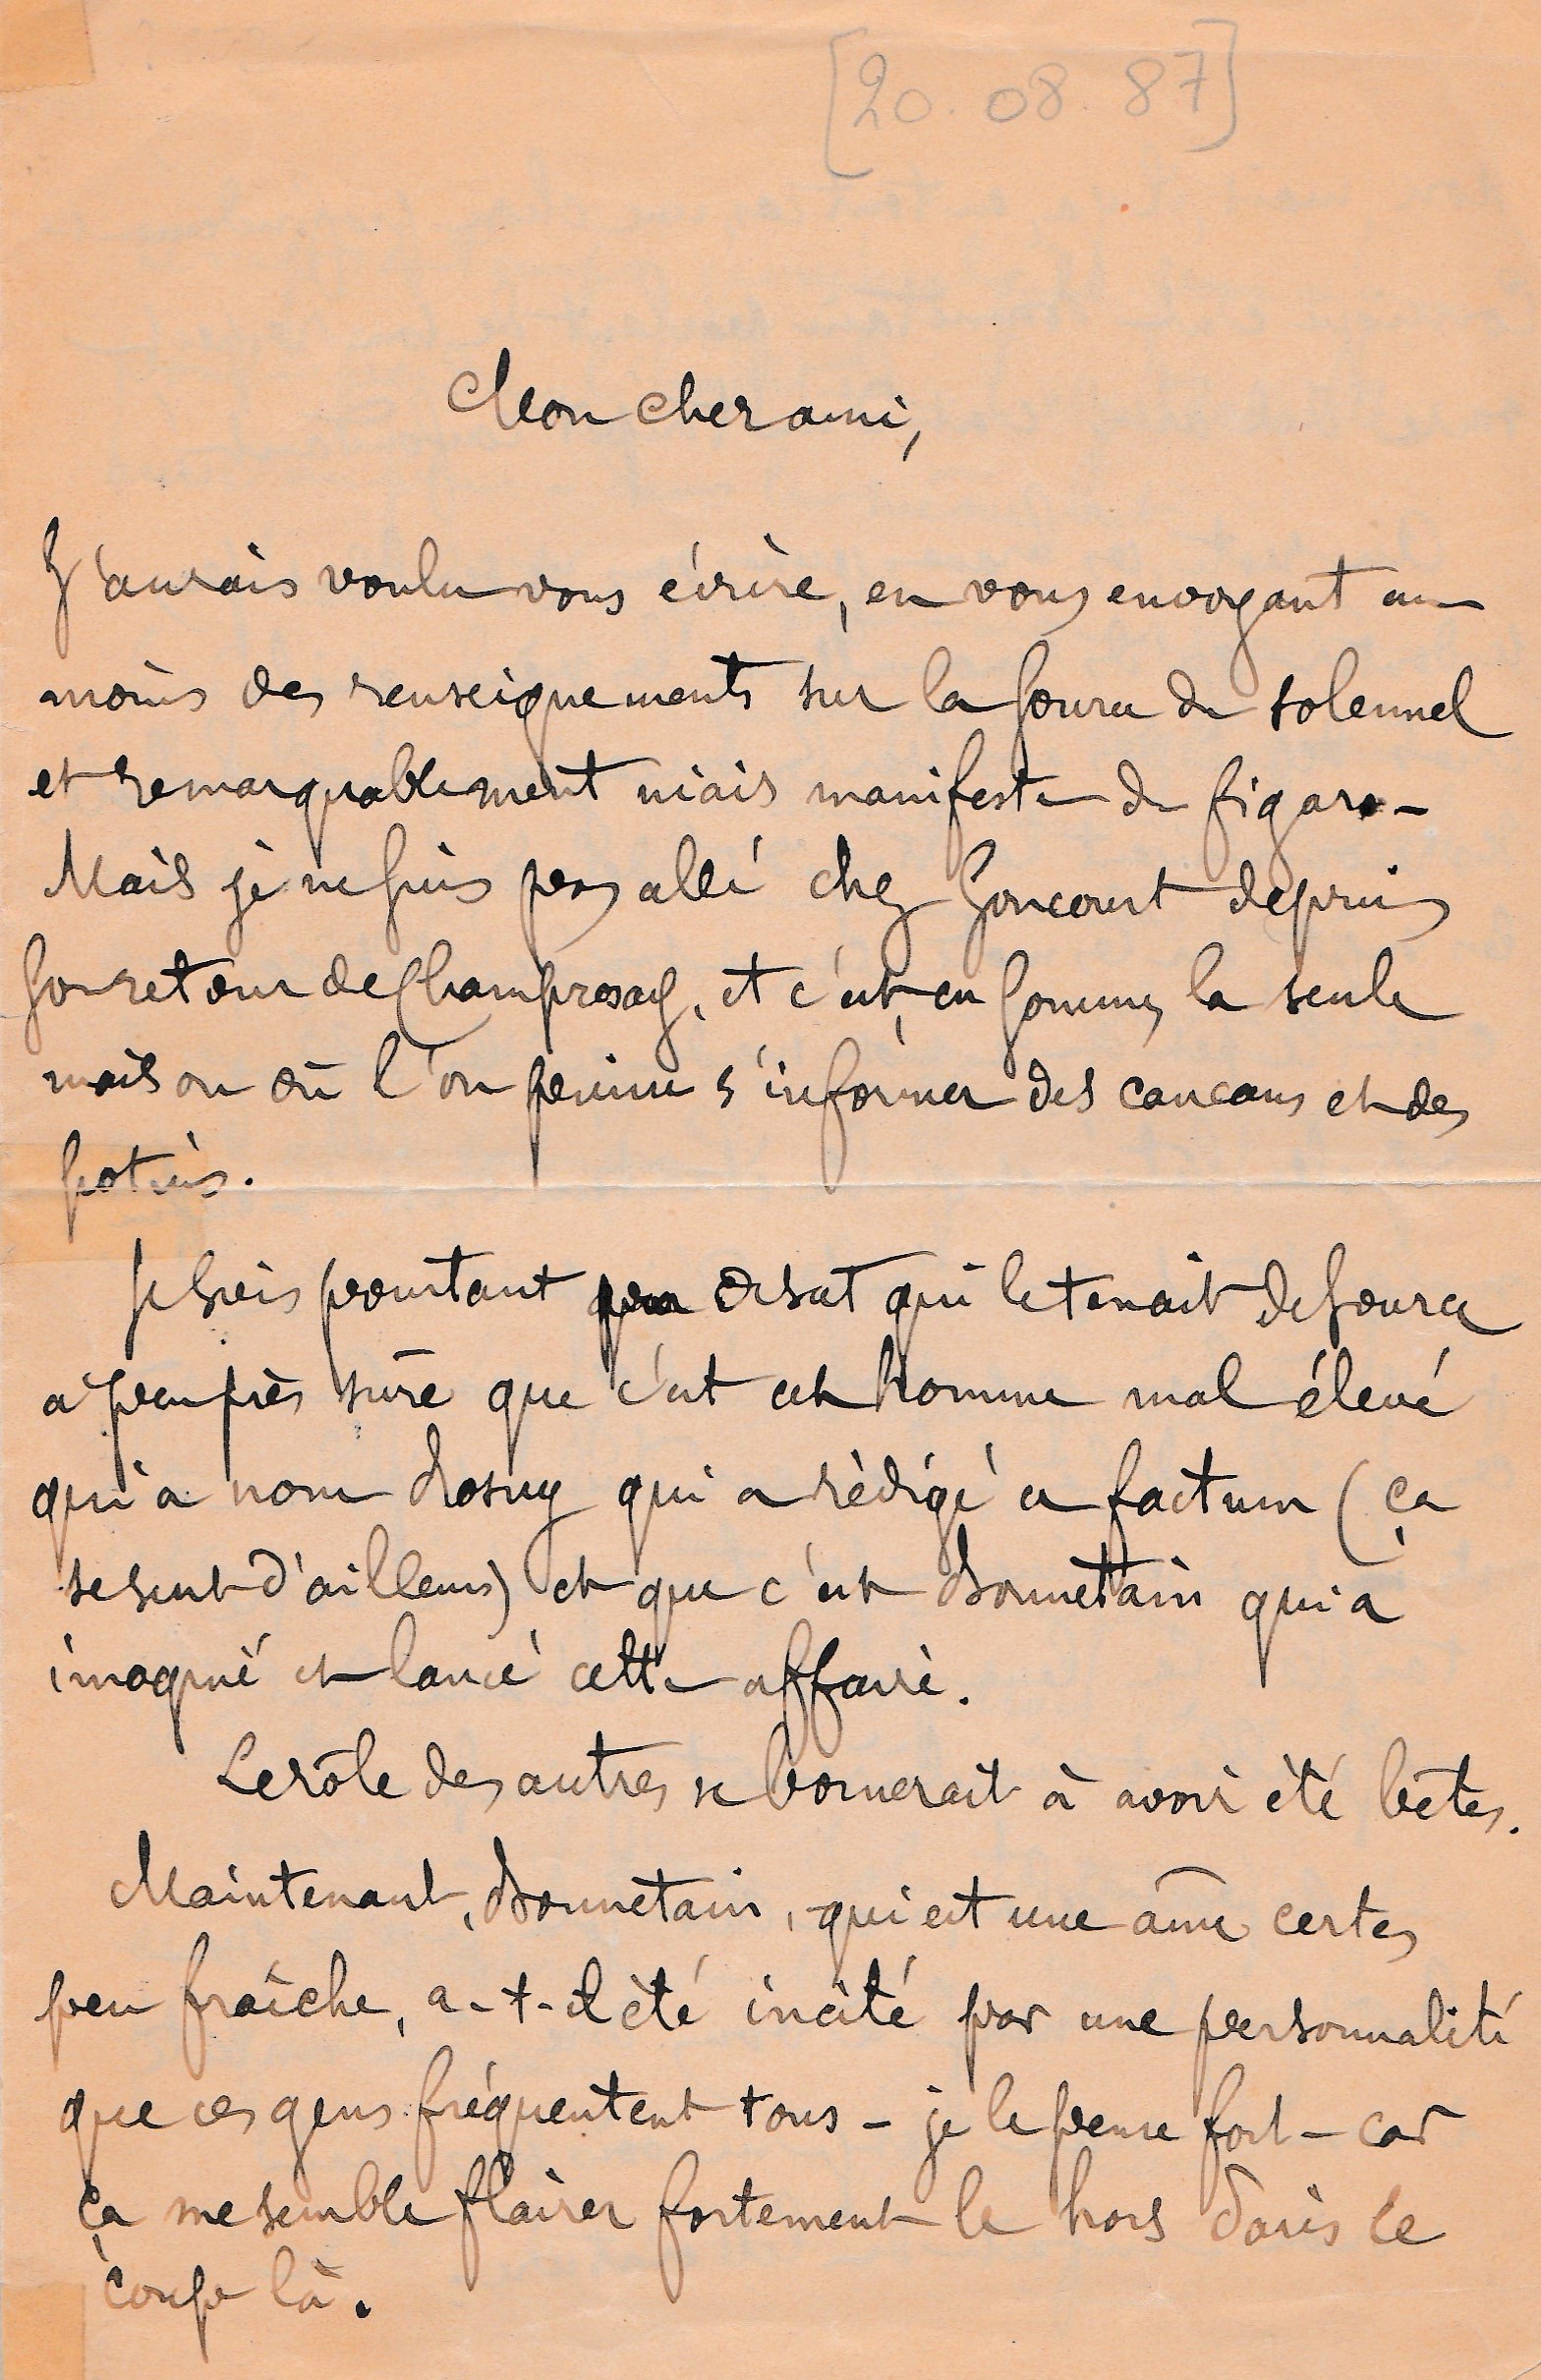 [20.08.87]
Mon cher ami,
J'aurais voulu vous écrire, en vous envoyant au
moins des renseignements sur la source du solennel
et remarquablement niais manifeste du figaro -
Mais je ne suis pas allé chez Goncourt depuis
son retour de Champrosay, et c'est, en somme, la seule
maison où l'on puisse s'informer des cancans et des
potins.
Je sais pourtant par Orsat qui le tenait de source
à peu près sûre que c'est cet homme mal élevé
qui a nom Rosny qui a rédigé ce factum (ça
se sent d'ailleurs) et que c'est Bonnetain qui a
imaginé et lancé cette affaire.
Le rôle des autres se bornerait à avoir été bêtes.
Maintenant, Bonnetain, qui est une âme certes
peu fraîche, a-t-il été incité par une personnalité
que ces gens fréquentent tous - je le pense fort - car
ça me semble flairer fortement le hors dans ce
coup là.